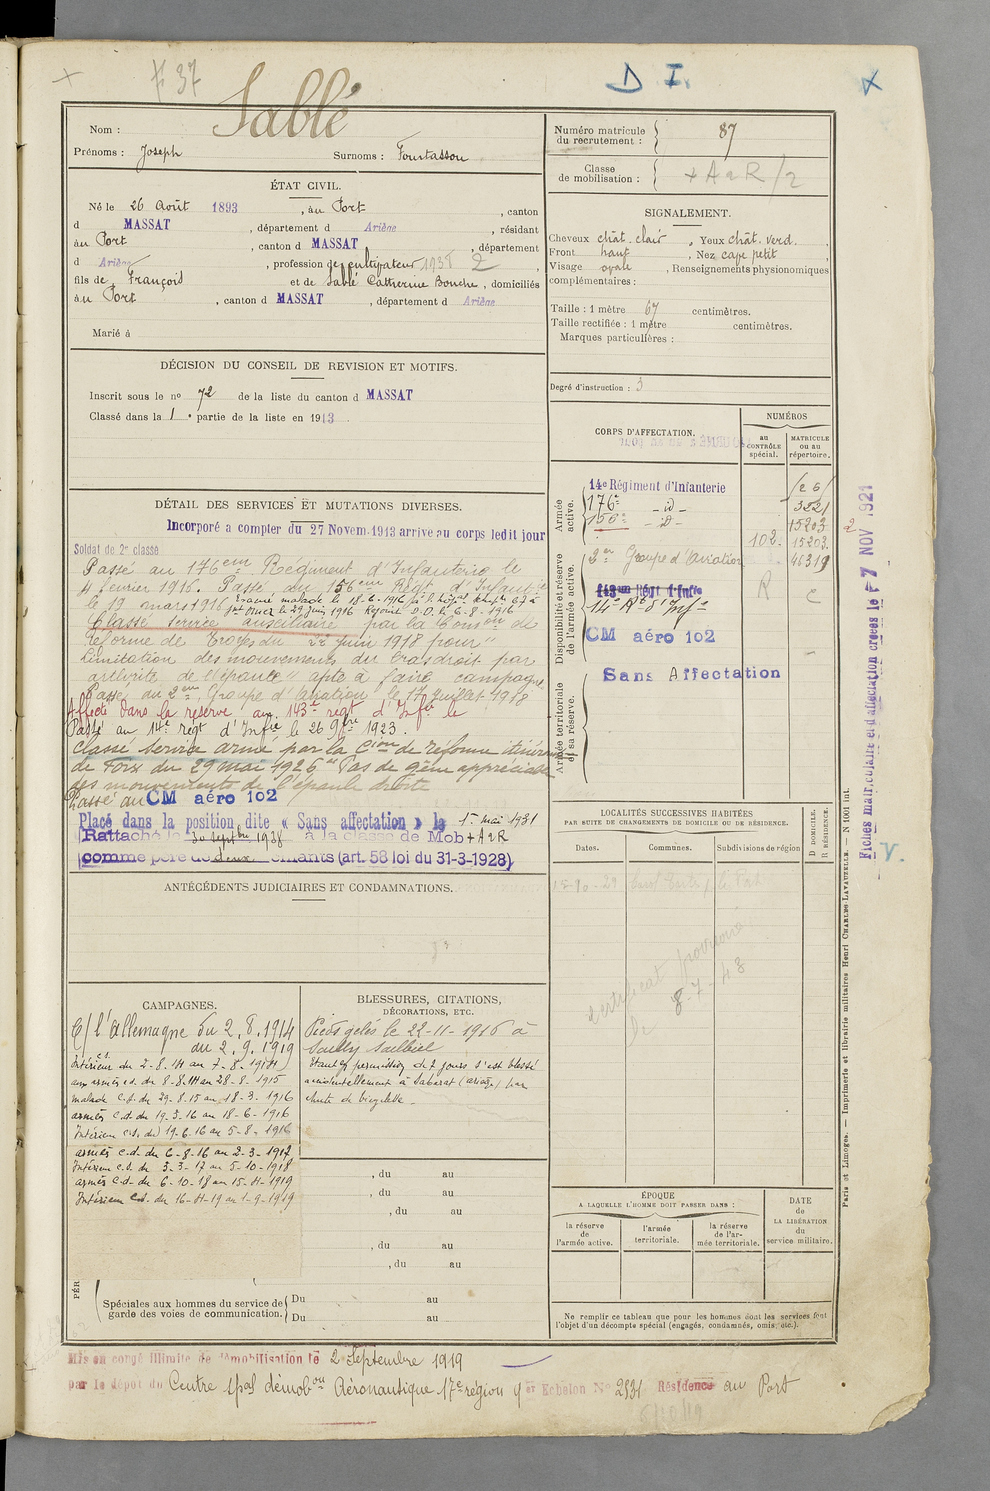 F 37
D I.
Sablé
Nom :
Prénoms : Joseph Surnoms : Fourtassou
Numéro matricule du recrutement : 87
Classe de mobilisation : + A a R / 2
ÉTAT CIVIL.
Né le 26 Août 1893, àu Port, canton
d MASSAT, département d Ariège, résidant
àu Port, canton d MASSAT, département
d Ariège, profession de cultivateur 1938 2
fils de François et de Sablé Catherine Bouche, domiciliés
àu Port, canton d MASSAT, département d Ariège
Marié à
SIGNALEMENT.
Cheveux chât. clair, Yeux chât. verd.
Front haut, Nez cave petit
Visage ovale, Renseignements physionomiques
complémentaires :
Taille : 1 mètre 67 centimètres.
Taille rectifiée : 1 mètre centimètres.
Marques particulières :
Degré d'instruction : 3
DÉCISION DU CONSEIL DE REVISION ET MOTIFS.
Inscrit sous le nº 72 de la liste du canton d MASSAT
Classé dans la 1 e partie de la liste en 1913.
DÉTAIL DES SERVICES ET MUTATIONS DIVERSES.
Incorporé a compter du 27 Novem. 1913 arrivé au corps ledit jour
Soldat de 2e classe
Passé au 176ème Régiment d'Infanterie le
4 février 1916. Passé du 156ème Régt d'Infantie
le 19 mars 1916 Evacué malade le 18-6-1916
St Omer le 29 juin 1916 Rejoint D.O. le 6-8-1916
Classé service auxiliaire par la Comon de
réforme de Troyes du 22 juin 1918 pour "
Limitation des mouvements du bras droit par
arthrite de l'épaule" apte à faire campagne
Passé au 2ème Groupe d'aviation le 17 juillet 1918
Affecté dans la réserve au 143e régt d'Infie le
Passé au 14e régt d'Infie le 26 9bre 1923.
Classé service armé par la Cion de réforme itinérante
de Foix du 29 mai 1926 "Pas de gêne appréciable
des mouvements de l'épaule droite
Passé au CM aéro 102
Placé dans la position dite « Sans affectation » le 1er mai 1931
Rattaché le 30 septbre 1938 à la classe de Mob + A a R
comme père de deux enfants (art. 58 loi du 31-3-1928)
CORPS D'AFFECTATION.
NUMÉROS
au CONTRÔLE spécial.
MATRICULE ou au répertoire.
Armée active.
14e Régiment d'Infanterie
176e - d - 3221
156e - d - 15203
102. 15203
Disponibilité et réserve de l'armée active.
2er Groupe d'Aviation 46319
143eme Régt d'Infie R C
14e Rt d'Infie
CM aéro 102
Armée territoriale et sa réserve.
Sans Affectation
Fiches matriculaire et d'affectation créées le 7 NOV 1921
V.
LOCALITÉS SUCCESSIVES HABITÉES
PAR SUITE DE CHANGEMENTS DE DOMICILE OU DE RÉSIDENCE.
Dates. Communes. Subdivisions de région
D DOMICILE. R RÉSIDENCE.
certificat provisoire
8-7-43
ANTÉCÉDENTS JUDICIAIRES ET CONDAMNATIONS.
CAMPAGNES.
C/ l'Allemagne du 2.8.1914
au 2.9.1919
Intérieur du 2-8-14 au 7-8-1914
aux armées c.d. du 8-8-14 au 28-8-1915
malade c.d. du 29-8.15 au 18-3-1916
armées c.d. du 19-3-16 au 18-6-1916
Intérieur c.d. du 19-6.16 au 5-8-1916
armées c.d. du 6-8-16 au 2-3-1917
Intérieur c.d. du 3-3-17 au 5-10-1918
armées c.d. du 6-10-18 au 15-11-1919
Intérieur c.d. du 16-11-19 au 1-9-1919
BLESSURES, CITATIONS,
DÉCORATIONS, ETC.
Pieds gelés le 22-11-1916 à
Sailly Saillisel
Etant en permission de 7 jours s'est blessé
accidentellement à Sabarat (Ariège) par
chute de bicyclette.
, du au
, du au
, du au
, du au
, du au
PÉR
Spéciales aux hommes du service de garde des voies de communication.
Du au
Du au
ÉPOQUE
A LAQUELLE L'HOMME DOIT PASSER DANS :
la réserve de l'armée active.
l'armée territoriale.
la réserve de l'armée territoriale.
DATE de LA LIBÉRATION du service militaire.
Ne remplir ce tableau que pour les hommes dont les services font
l'objet d'un décompte spécial (engagés, condamnés, omis, etc.).
Paris et Limoges. — Imprimerie et librairie militaires Henri CHARLES-LAVAUZELLE. — N 1001 int.
Mis en congé illimité de démobilisation le 2 Septembre 1919
par le dépôt du Centre spal démobon Aéronautique 17e région 4er Echelon No 2531 Résidence au Port